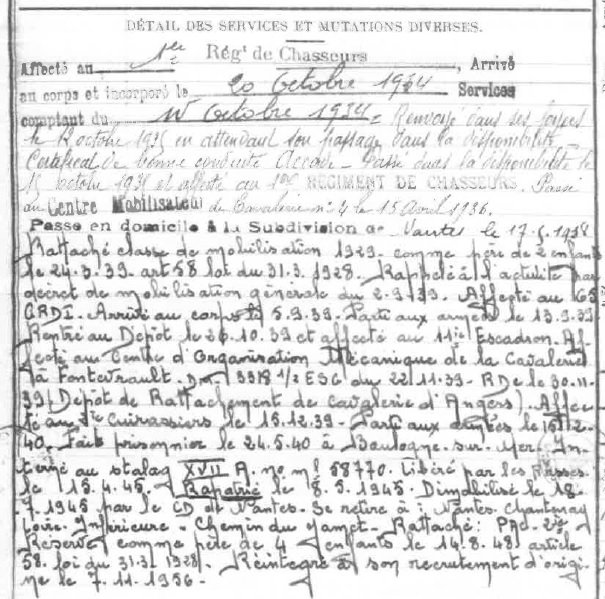 DÉTAIL DES SERVICES ET MUTATIONS DIVERSES.
Affecté au 1er Régt de Chasseurs, Arrivé
au corps et incorporé le 20 Octobre 1934 Services
comptant du 15 Octobre 1934 - Renvoyé dans ses foyers
le 12 octobre 1935 en attendant son passage dans la disponibilité -
Certificat de bonne conduite Accordé - Passé dans la disponibilité le
15 octobre 1935 et affecté au 1er REGIMENT DE CHASSEURS. Passé
au Centre Mobilisateur de Cavalerie n° 4 le 15 Avril 1936.
Passe en domicile à la Subdivision de Nantes le 17-5-1938
Rattaché classe de mobilisation 1929 comme père de 2 enfants
le 24.3.39 art 58 loi du 31.3.1928. Rappelé à l'activité par
décret de mobilisation générale du 2-9-39. Affecté au 65
GRDI. Arrivé au corps le 5.9.39. Parti aux armées le 13.9.39
Rentré au Dépôt le 26.10.39 et affecté au 11ie Escadron. Af-
fecté au Centre d'Organisation Mécanique de la Cavalerie
à Fontevrault. D.M. 3318 1/2 ESC du 22/11.39 - RDe le 30-11-
39 (Dépôt de Rattachement de Cavalerie d'Angers). Affec-
té au Cuirassiers le 15.12.39 - Parti aux armées le 15-2-
40. Fait prisonnier le 24.5.40 à Boulogne-sur-Mer. In-
terné au stalag XVII A. no ml 58770. Libéré par les Russes
le 15.4.45. Rapatrié le 8.5.1945. Démobilisé le 18-
-7.1945 par le CD de Nantes. Se retire à : Nantes-Chantenay
Loire-Inférieure - Chemin du Jamet - Rattaché: PAC-2e
Réserve comme père de 4 enfants le 14.8.48 article
58. loi du 31.3.1928. Réintégré à son recrutement d'origi-
ne le 7.11.1956-